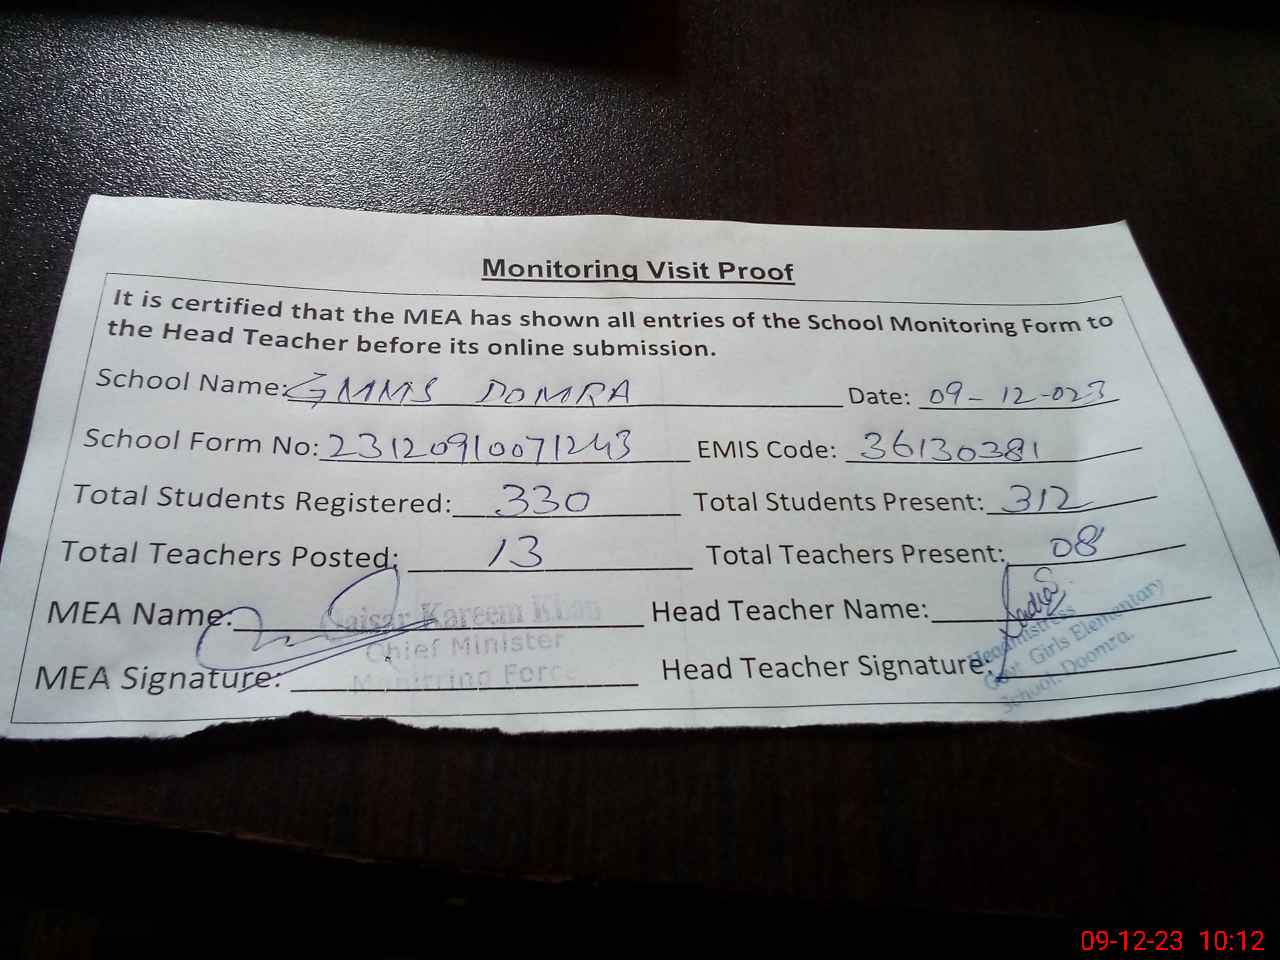 Monitoring Visit Proof
It is certified that the MEA has shown all entries of the School Monitoring Form to
the Head Teacher before its online submission.
School Name: GMMS DOMRA Date: 09-12-023
School Form No: 23120910071243 EMIS Code: 36130381
Total Students Registered: 330 Total Students Present: 312
Total Teachers Posted: 13 Total Teachers Present: 08
MEA Name: Qaisar Kareem Khan Head Teacher Name: Sadia
Chief Minister Headmistress
MEA Signature: Monitrring Force Head Teacher Signature: Govt. Girls Elementary
School, Doomra.
09-12-23 10:12